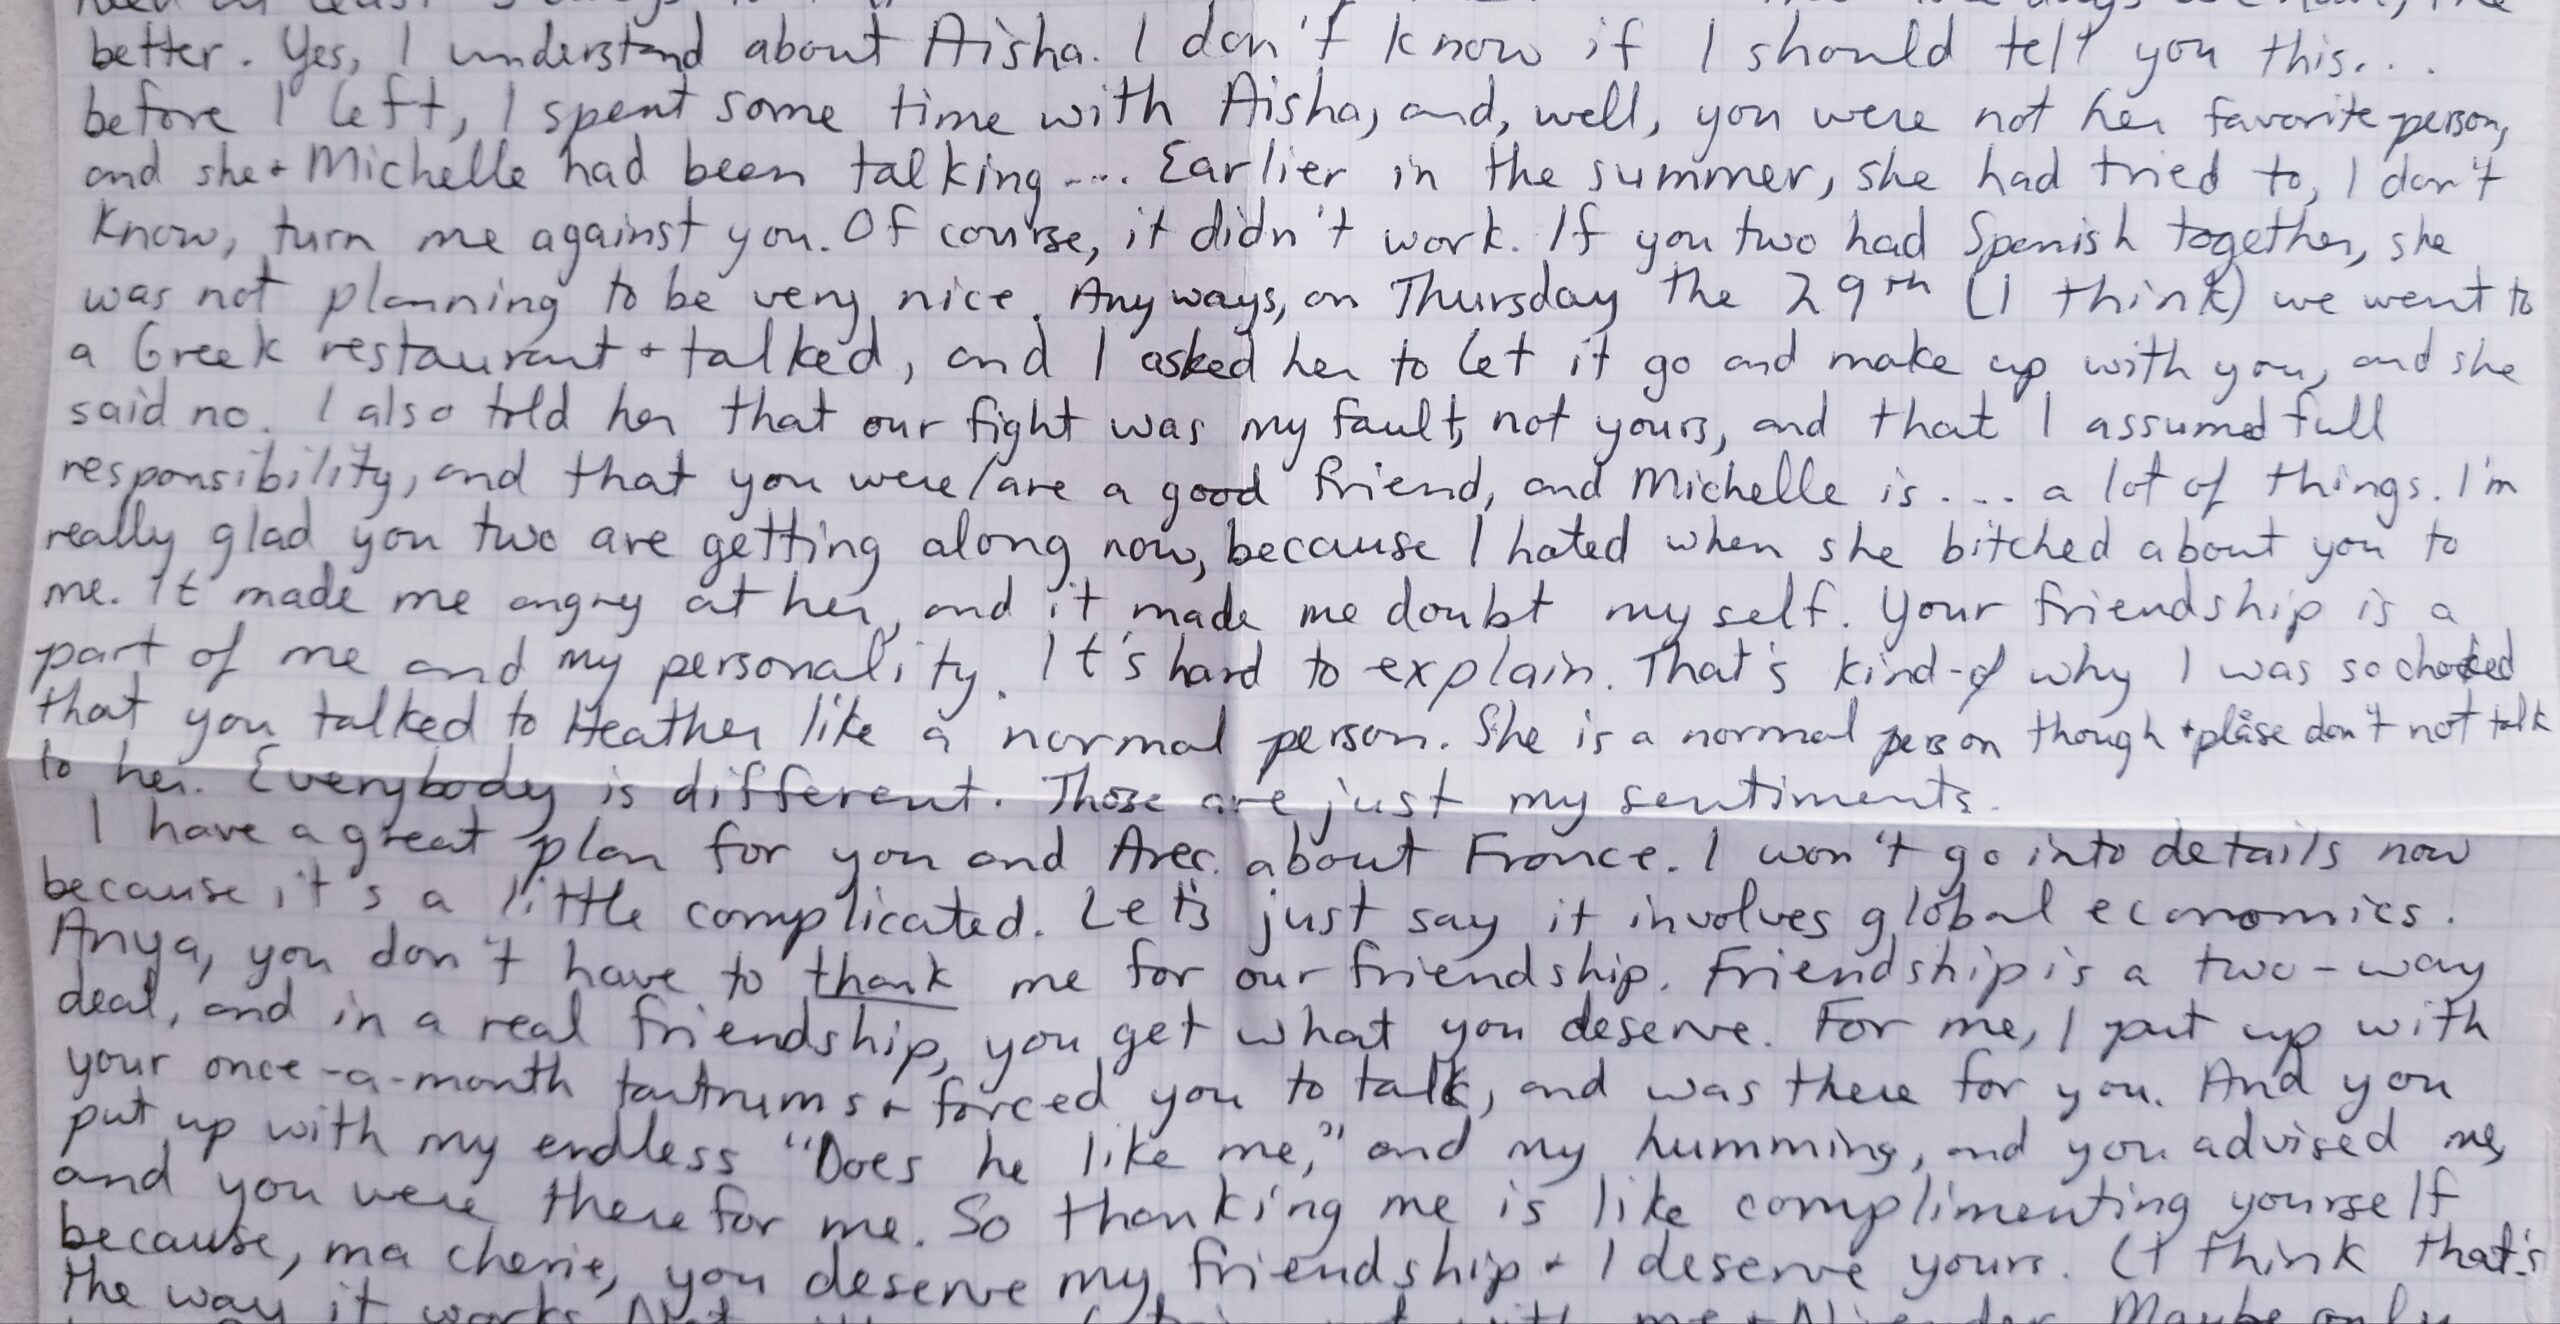 need at least
better. Yes, I understand about Aisha. I don't know if I should tell you this...
before I left, I spent some time with Aisha, and, well, you were not her favorite person,
and she + Michelle had been talking .... Earlier in the summer, she had tried to, I don't
know, turn me against you. Of course, it didn't work. If you two had Spanish together, she
was not planning to be very nice. Anyways, on Thursday the 29th (I think) we went to
a Greek restaurant + talked, and I asked her to let it go and make up with you, and she
said no. I also told her that our fight was my fault, not yours, and that I assumed full
responsibility, and that you were/are a good friend, and Michelle is .... a lot of things. I'm
really glad you two are getting along now, because I hated when she bitched about you to
me. It made me angry at her, and it made me doubt myself. Your friendship is a
part of me and my personality. It's hard to explain. That's kind-of why I was so
that you talked to Heather like a normal person. She is a normal person though + please don't not talk
to her. Everybody is different. Those are just my sentiments.
I have a great plan for you and Avec about France. I won't go into details now
because it's a little complicated. Let's just say it involves global economics.
Anya, you don't have to thank me for our friendship. Friendship is a two-way
deal, and in a real friendship, you get what you deserve. For me, I put up with
your once-a-month tantrums + forced you to talk, and was there for you. And you
put up with my endless "Does he like me," and my humming, and you advised me,
and you were there for me. So thanking me is like complimenting yourself
because, ma cherie, you deserve my friendship + I deserve yours. (I think that's
the way it works. Not with me + Maybe only